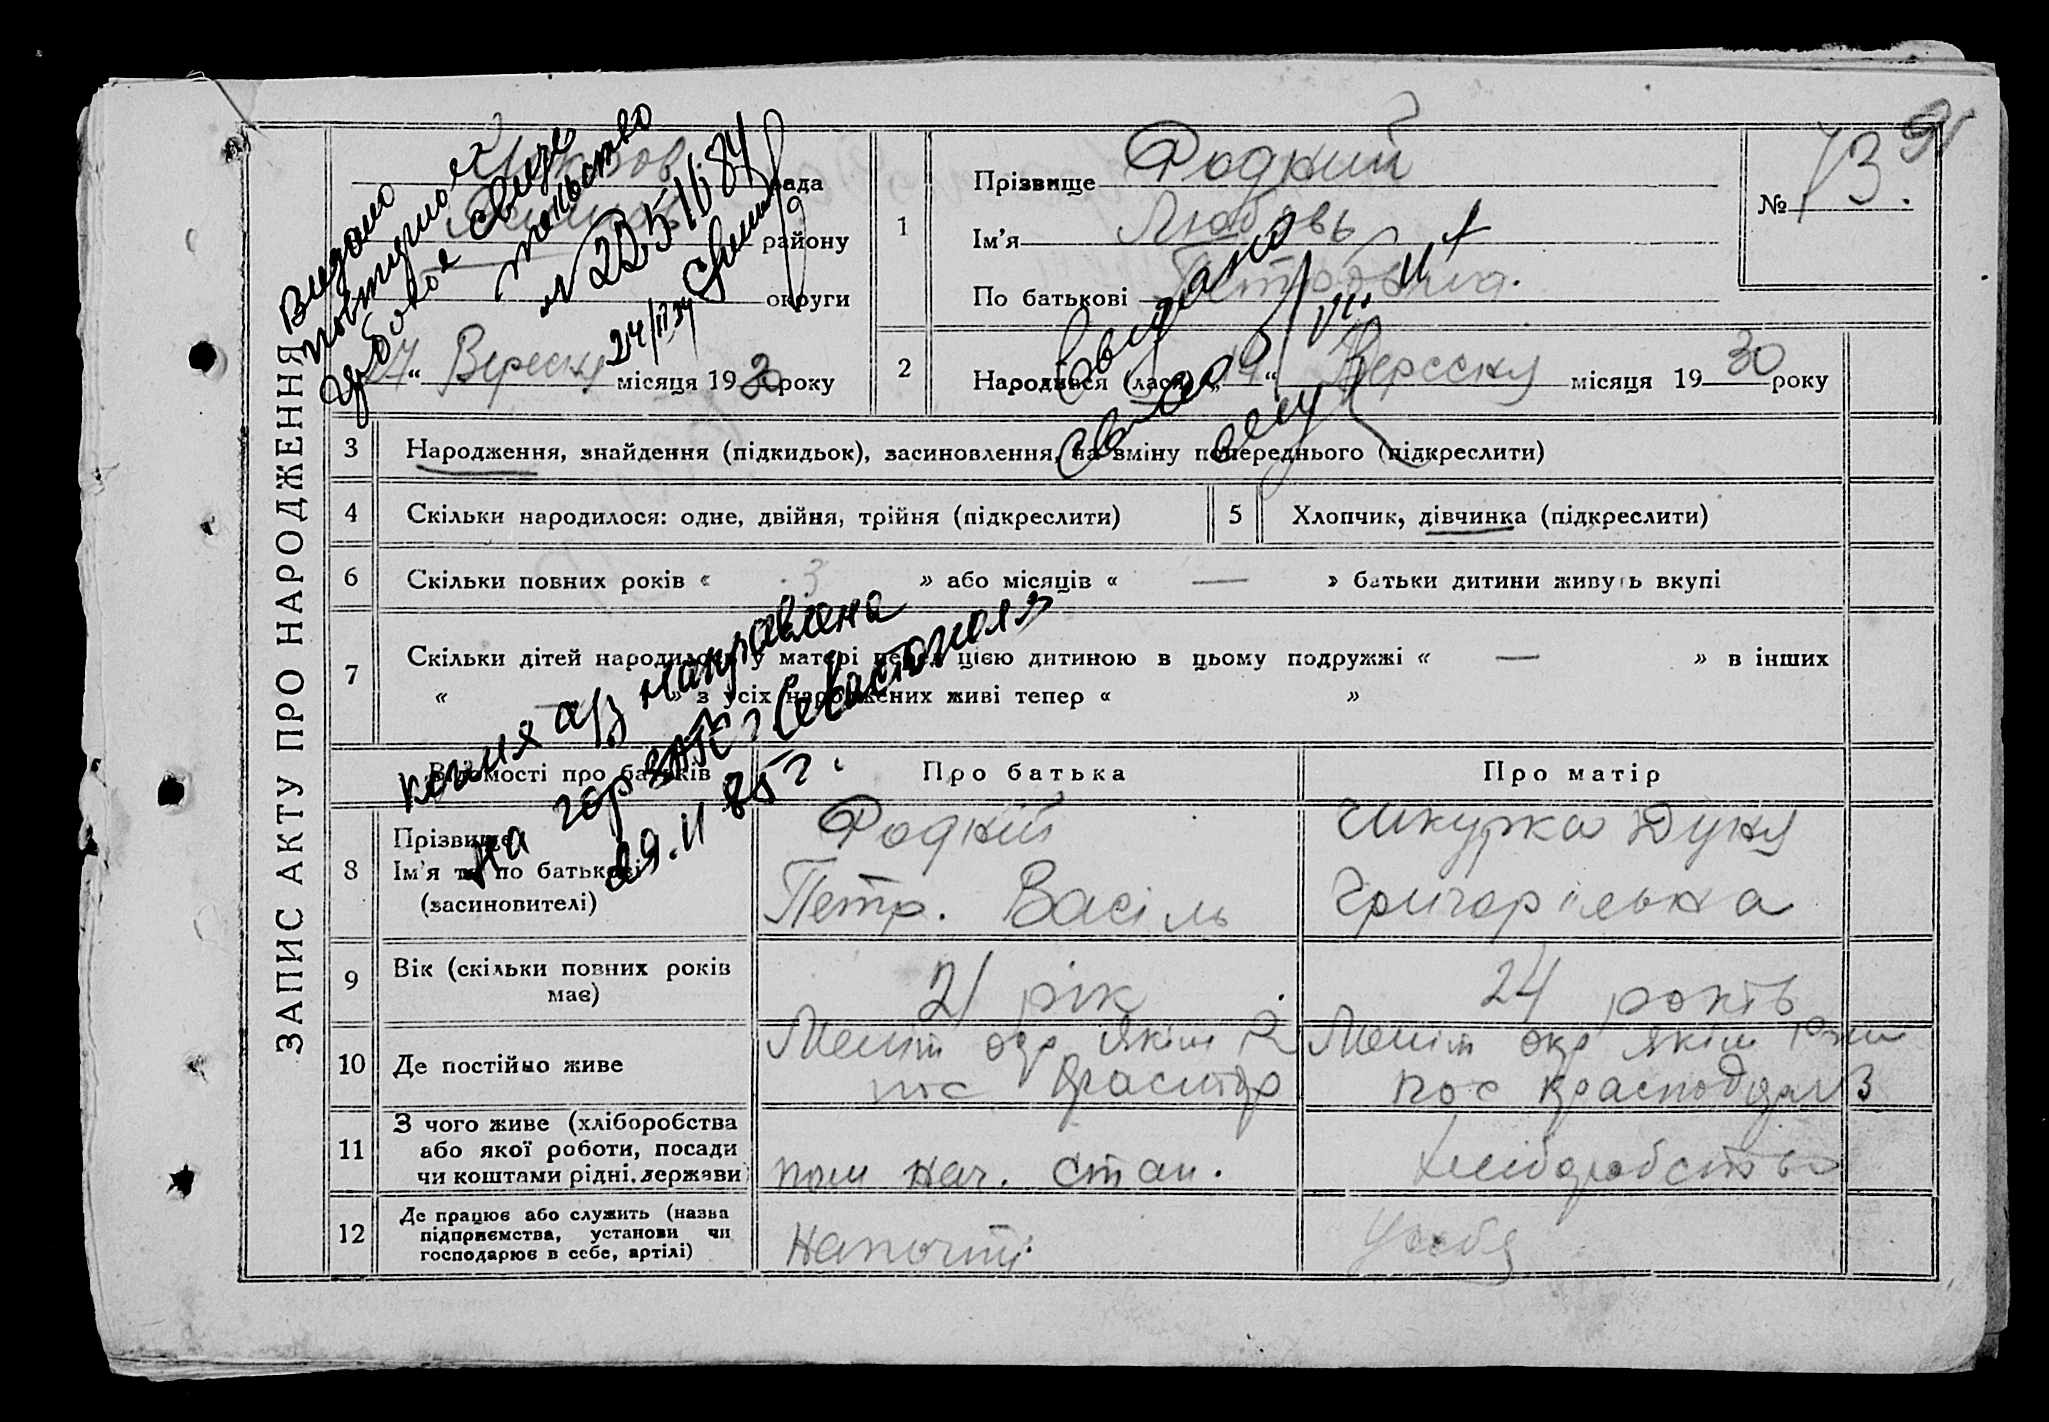 91
ЗАПИС АКТУ ПРО НАРОДЖЕННЯ
рада
району
округи
Видано
повторно
свиде
тельство
24/II 54
Вересня місяця 1930 року
1
Прізвище Фодкий
Ім'я Любовь
По батькові Петровна.
№ 73.
2
Народився (лася) „ “ Вересня місяця 1930 року
Выдано
3
Народження, знайдення (підкидьок), засиновлення, на зміну попереднього (підкреслити)
4
Скільки народилося: одне, двійня, трійня (підкреслити)
5
Хлопчик, дівчинка (підкреслити)
6
Скільки повних років « 3 » або місяців « — » батьки дитини живуть вкупі
7
Скільки дітей народилось у матері перед цією дитиною в цьому подружжі « — » в інших
« — » з усіх народжених живі тепер « »
копия а/з направлена
на гор ЗАГС г. Севастополя
29.11 85 г.
Відомості про батьків
Про батька
Про матір
8
Прізвище
Ім'я та по батькові
(засиновителі)
Фодкий
Петр. Васіль
Шкурка Дуня
Григорівна
9
Вік (скільки повних років
має)
21 рік
24 років
10
Де постійно живе
Меліт окр Якім
пос
Меліт окр Якім
пос
11
З чого живе (хліборобства
або якої роботи, посади
чи коштами рідні, держави)
пом нач. стан.
хліборобство
12
Де працює або служить (назва
підприємства, установи чи
господарює в себе, артілі)
На почті
У себя